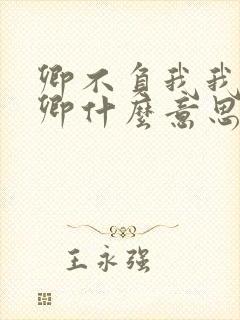 卿不负我我
卿什麽意思
王永强